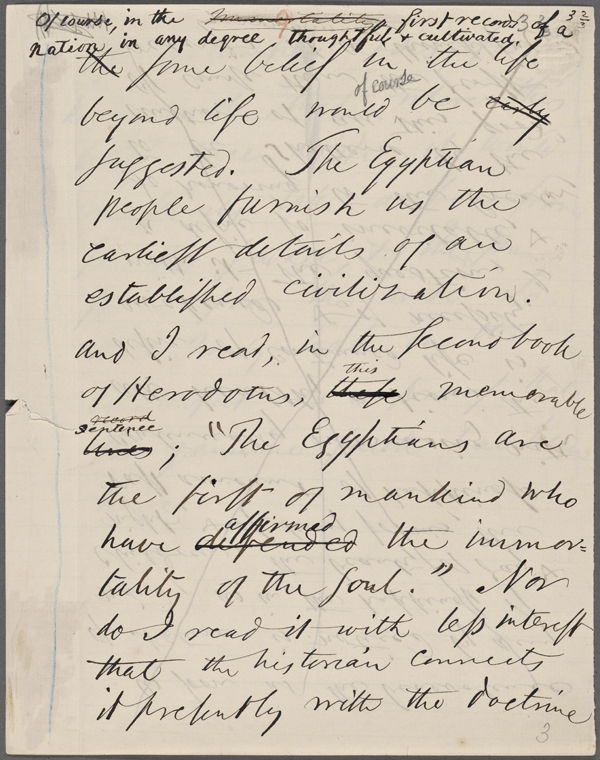 Of course, in the Immortality first records of a
nation, in any degree thoughtful & cultivated,
the some belief in the life
of course
beyond life would be early
suggested. The Egyptian
people furnish us the
earliest details of an
established civilization.
and I read, in the second book
this
of Herodotus, these memorable
record
sentence
lines; "The Egyptians are
the first of mankind who
affirmed
have defended the immor=
tality of the soul." Nor
do I read it with less interest
that the historian connects
it presently with the doctrine
3